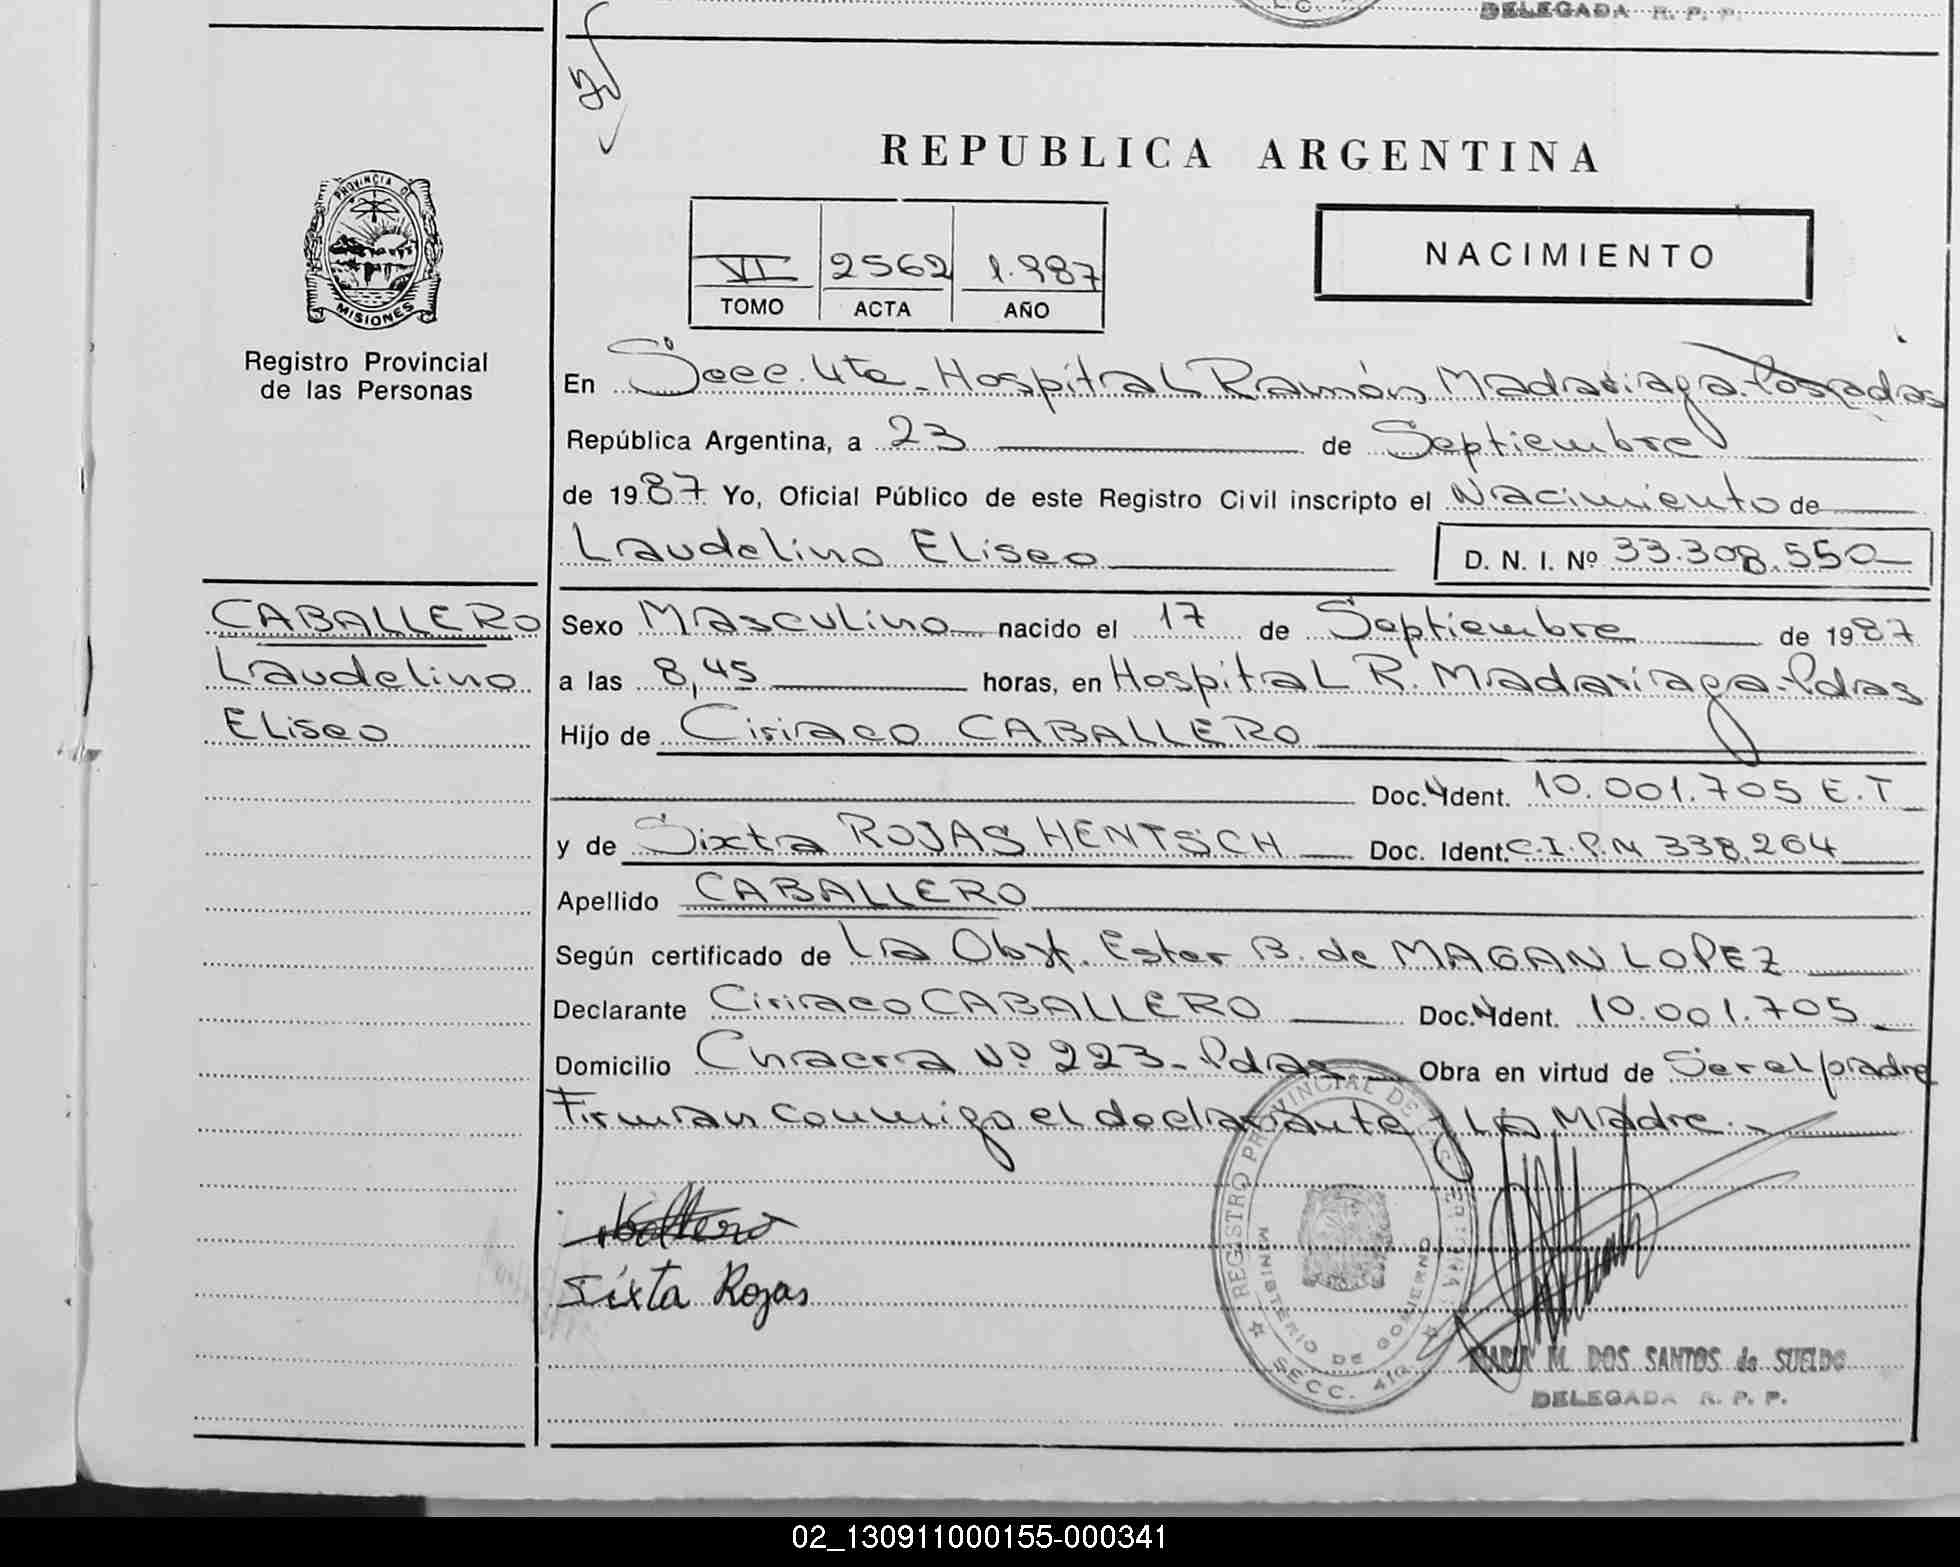 DELEGADA R. P. P.
REPUBLICA ARGENTINA
PROVINCIA DE
MISIONES
Registro Provincial
de las Personas
VI 2562 1.987
TOMO ACTA AÑO
NACIMIENTO
En Secc. 4ta. Hospital Ramón Madariaga. Posadas
República Argentina, a 23 de Septiembre
de 1987 Yo, Oficial Público de este Registro Civil inscripto el Nacimiento de
Laudelino Eliseo D. N. I. Nº 33.308.550
CABALLERO
Laudelino
Eliseo
Sexo Masculino nacido el 17 de Septiembre de 1987
a las 8,45 horas, en Hospital R. Madariaga-Pdas
Hijo de Ciriaco CABALLERO
Doc. Ident. 10.001.705 E.T
y de Sixta ROJAS HENTSCH Doc. Ident. C.I.P.M 338.264
Apellido CABALLERO
Según certificado de La Obst. Ester B. de MAGAN LOPEZ
Declarante Ciriaco CABALLERO Doc. Ident. 10.001.705
Domicilio Chacra Nº 223- Pdas Obra en virtud de Ser el padre
Firman conmigo el declarante y La Madre.
Sixta Rojas
REGISTRO PROVINCIAL DE
MINISTERIO DE GOBIERNO
SECC. 4ta
MARIA M. DOS SANTOS de SUELDO
DELEGADA R. P. P.
02_130911000155-000341